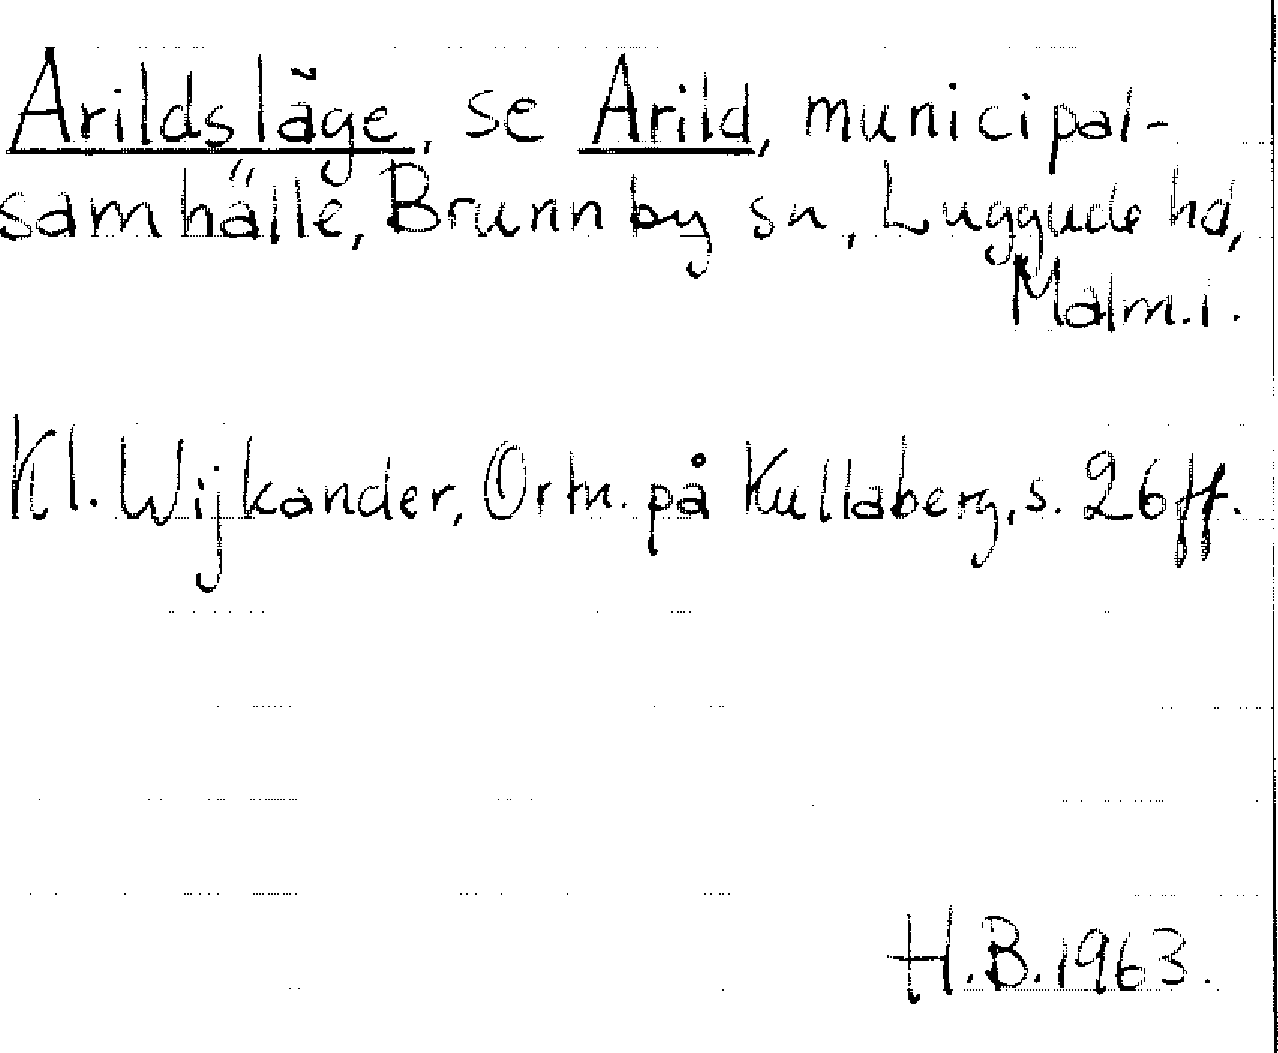 Arildsläge, se Arild, municipal-
samhälle, Brunnby sn, Luggude hd,
Malm.i.
Kl. Wijkander, Ortn. på Kullaberg, s. 26 ff.
H.B. 1963.